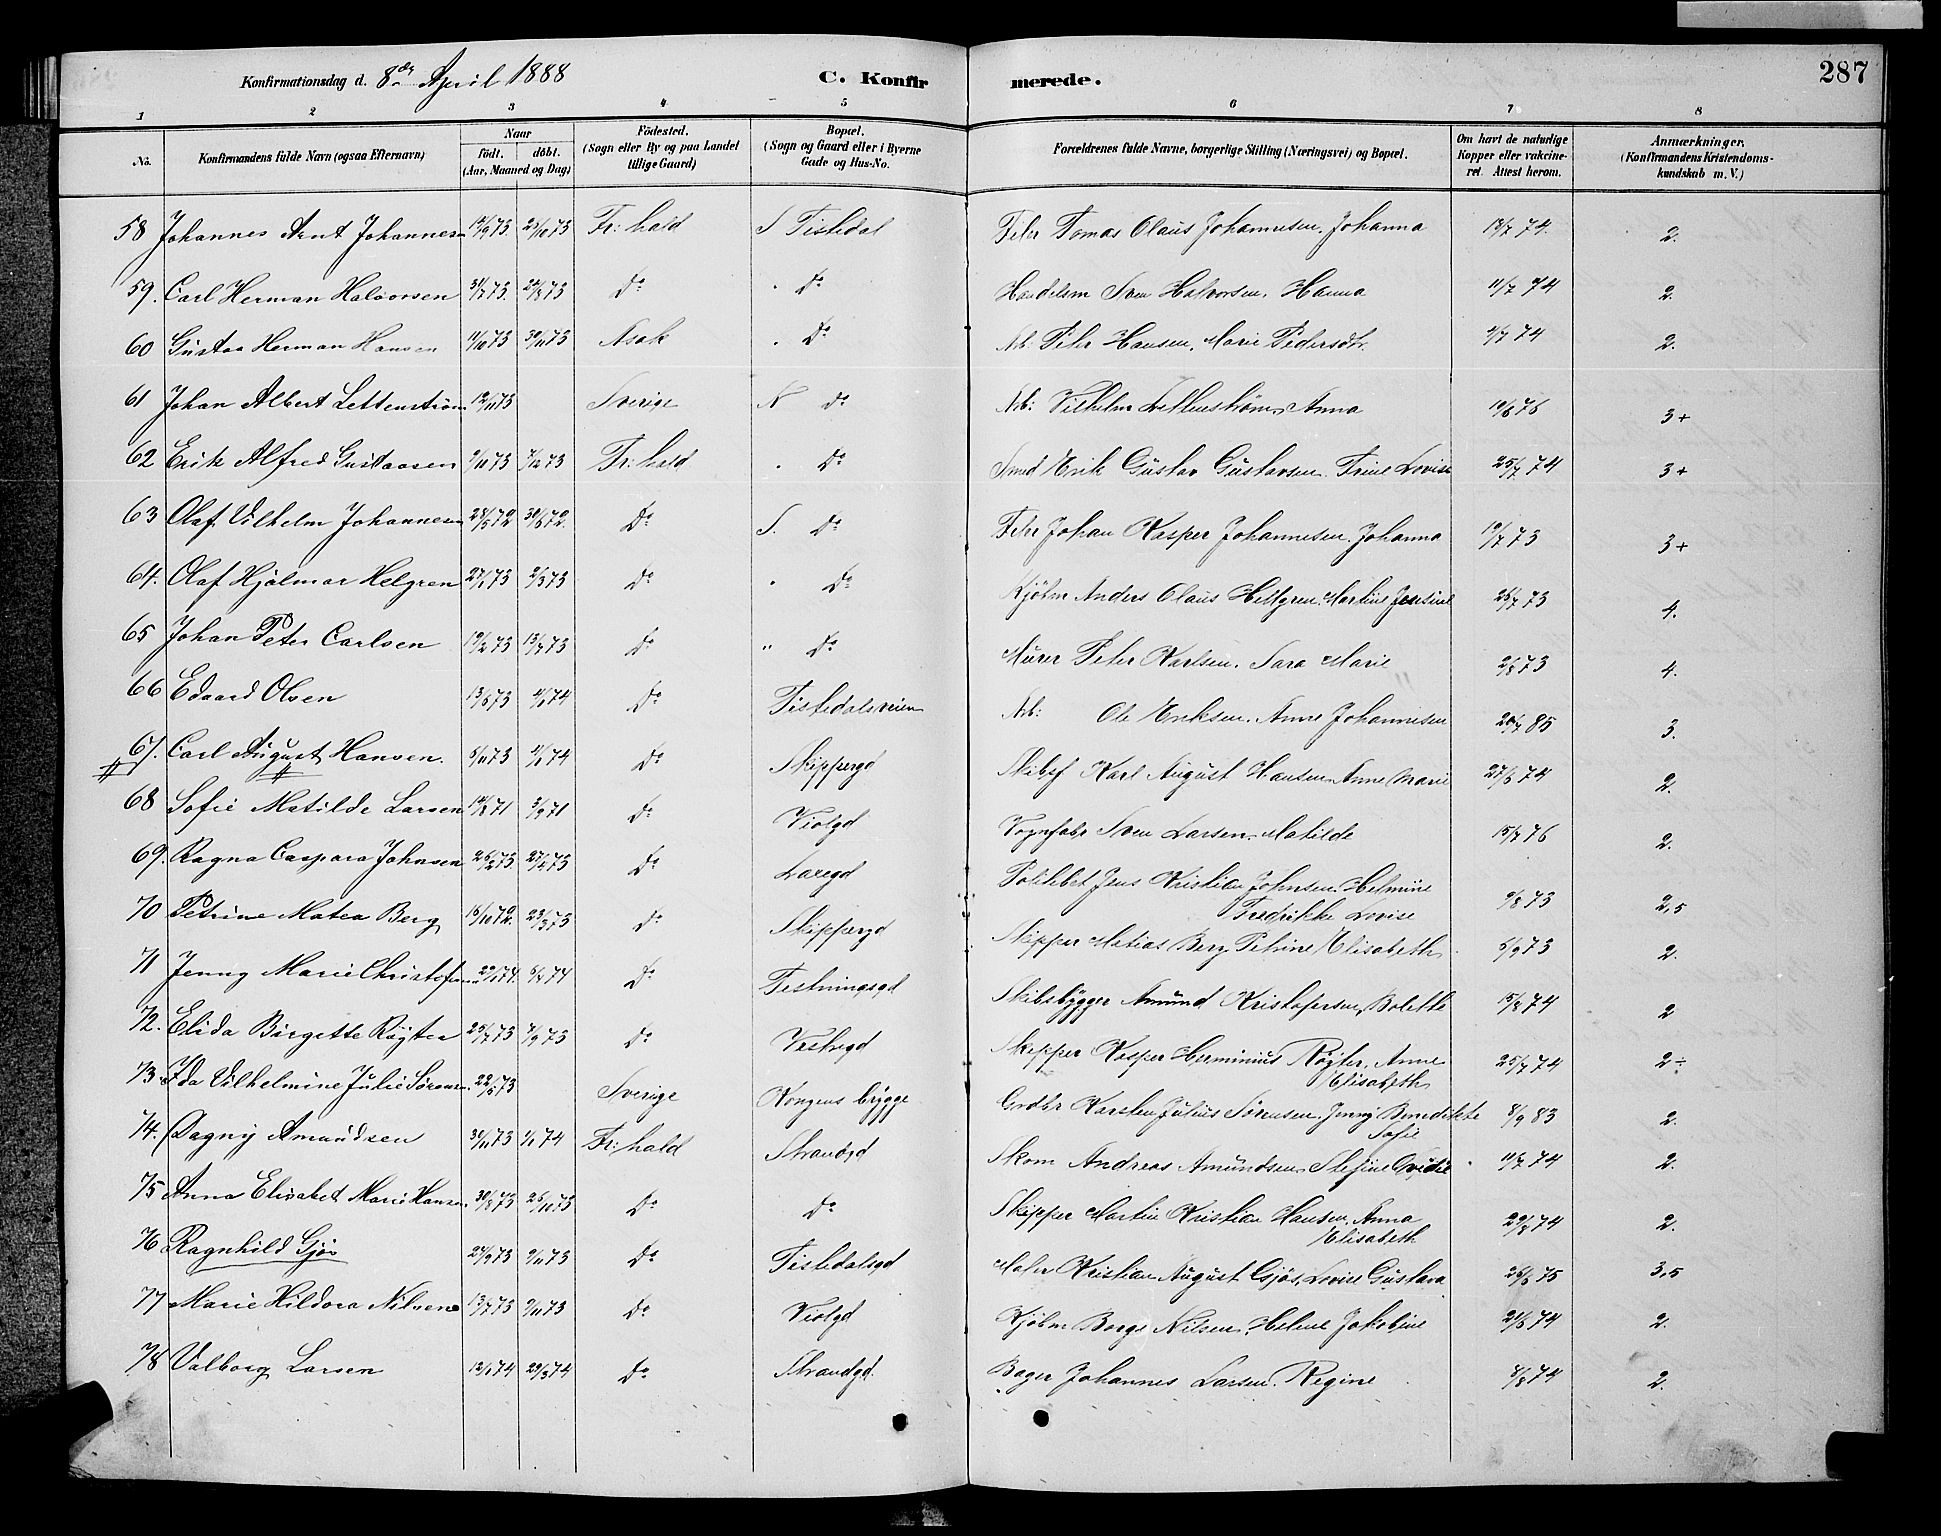 Konfirmationsdag d. 8de April 1888 C. Konfir merede. 287
1 2 3 4 5 6 7 8
No. Konfirmandens fulde Navn (ogsaa Efternavn) Naar födt. döbt. (Aar, Maaned og Dag) Födested. (Sogn eller By og paa Landet tillige Gaard) Bopæl. (Sogn og Gaard eller i Byerne Gade og Hus-No. Forældrenes fulde Navne, borgerlige Stilling (Næringsvei) og Bopæl. Om havt de naturlige Kopper eller vakcineret. Attest herom. Anmærkninger. (Konfirmandens Kristendomskundskab m. V.)
58 Johannes Arnt Johannesen 12/9 73. 23/10 73 Fr: hald S Tistedal Tomas Olaus Johannesen. Johanna 13/7 74. 2.
59. Carl Herman Halvorsen 31/7 73. 24/8 73 Do Do Handelsm Sven Halvorsen. Hanna 11/7 74 2.
60 Gustav Herman Hansen 11/10 73 30/11 73 Asak Do Arb: Peter Hansen, Marie Pedersdtr. 4/7 74 2.
61 Johan Albert Lettenström 12/11 73 Sverige N do Arb: Vilhelm Lettenström, Anna 10/6 76 3+
62 Erik Alfred Gustavsen 9/11 73 7/12 73 Fr: hald Do Smed Erik Gustav Gustavsen. Trine Lovise 25/7 74 3+
63 Olaf Vilhelm Johannesen 28/5 72 30/6 72. Do S. Do Johan Kasper Johannesen. Johanna 19/7 73 3+
64. Olaf Hjalmar Helgren 27/1 73 2/3 73 Do " Do Kjöbm Anders Olaus Hellgren. Martine Jensine 26/7 73 4.
65 Johan Peter Carlsen 19/2 73 13/4 73 Do " Do Murer Peter Karlsen. Sara Marie 2/8 73 4.
66 Edvard Olsen 13/6 73 4/1 74 Do Tistedalsveien Arb: Ole Eriksen. Anne Johannesen 20/7 85 3.
67. Carl August Hansen. 6/11 73 4/1 74 Do Skippergd Skibsf Karl August Hansen Anne Marie 27/6 74 2.
68 Sofie Matilde Larsen 14/8 71 3/9 71 Do Violgd Vognfabr Sven Larsen. Matilde 15/7 76 2.
69. Ragna Caspara Johnsen 26/2 73. 27/4 73 Do Politibet Jens Kristian Johnsen. Helmine Fredrikke Lovise 9/8 73 2,5
70 Petrine Matea Berg 16/10 72. 23/3 73 Do Skippergd Skipper Matias Berg Petrine Elisabeth 6/9 73 2.
71 Jenny Marie Christofersen 29/1 74. 6/4 74 Do Festningsgd Skibsbygger Amund Kristofersen, Bolette 15/8 74 2
72. Elida Birgitte Röyter 25/7 73 7/9 73 Do Vestregd Skipper Kasper Herminius Röyter. Anne Elisabeth 25/7 74 2÷
73. Ida Vilhelmine Julie Sörensen. 22/5 73 Sverige Kongens brygge Karsten Julius Sörensen. Jenny Benedikte Sofie 8/9 83 2.
74. Dagny Amundsen 30/11 73 1/1 74 Fr: hald Strandgd Skom Andreas Amundsen, Stefine 11/7 74 2.
75 Anna Elisabet Marie Hansen 30/8 73 26/10 73 Do Do Skipper Martin Kristian Hansen. Anna Elisabeth 29/8 74 2.
76 Ragnhild Gjös 24/9 73 9/11 73 Do Tistedalsgd Maler Kristian August Gjös, Lovise Gustava 26/6 75 3,5
77 Marie Hildora Nilsen 13/7 73 9/11 73 Do Violgd Kjöbm Borge Nilsen. Helene Jakobine 21/8 74 2.
78 Valborg Larsen 12/1 74 29/3 74 Do Strandgd. Bager Johannes Larsen. Regine 8/8 74 2.